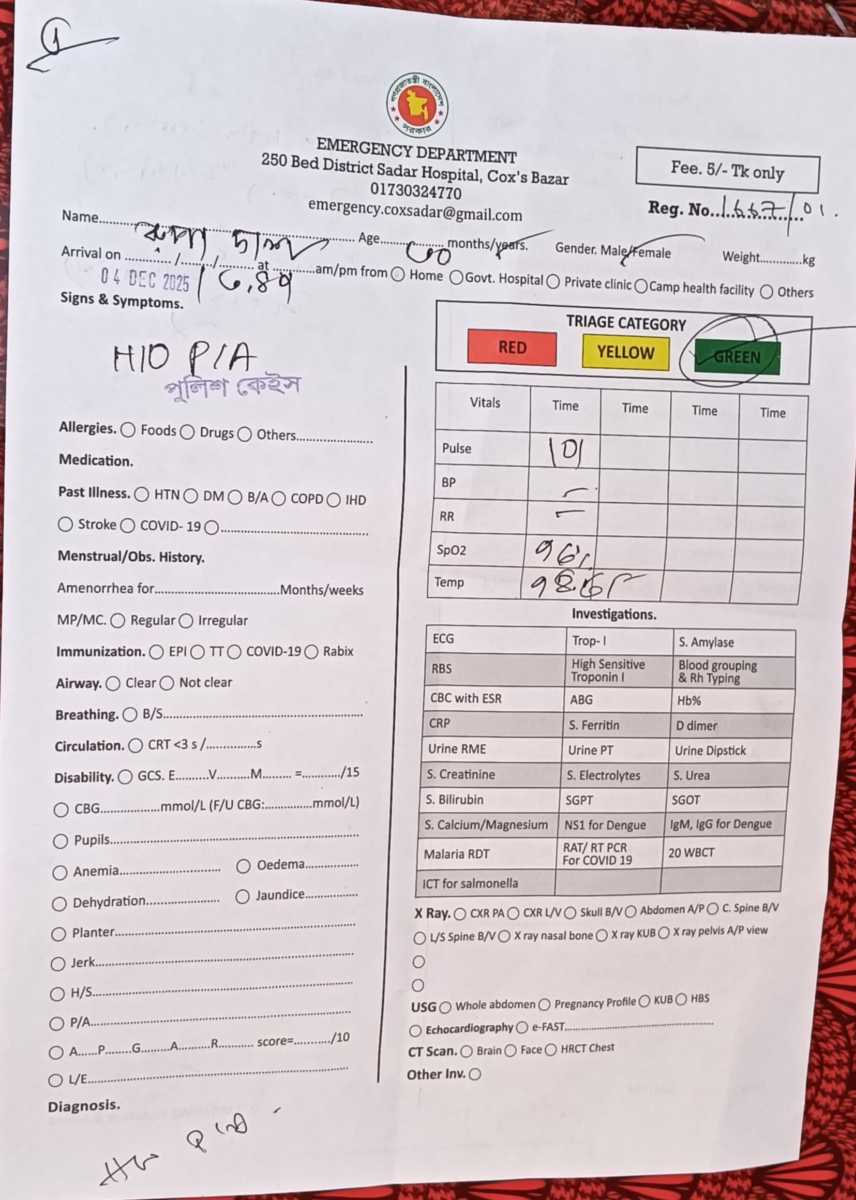 গণপ্রজাতন্ত্রী বাংলাদেশ সরকার
EMERGENCY DEPARTMENT
250 Bed District Sadar Hospital, Cox's Bazar
01730324770
emergency.coxsadar@gmail.com
Fee. 5/- Tk only
Reg. No. 1667/01.
Name.......... Age.......... months/years. Gender. Male/Female Weight............kg
Arrival on ........../......../........ at ..........am/pm from Home Govt. Hospital Private clinic Camp health facility Others
04 DEC 2025
Signs & Symptoms.
H/O P/A
পুলিশ কেইস
Allergies. Foods Drugs Others......................
Medication.
Past Illness. HTN DM B/A COPD IHD
Stroke COVID- 19 ..........................................
Menstrual/Obs. History.
Amenorrhea for....................................Months/weeks
MP/MC. Regular Irregular
Immunization. EPI TT COVID-19 Rabix
Airway. Clear Not clear
Breathing. B/S..........................................................
Circulation. CRT <3 s /...............s
Disability. GCS. E..........V..........M......... =.........../15
CBG..................mmol/L (F/U CBG:..............mmol/L)
Pupils......................................................................
Anemia............................. Oedema................
Dehydration..................... Jaundice...............
Planter.....................................................................
Jerk..........................................................................
H/S...........................................................................
P/A...........................................................................
A......P........G.........A..........R........... score=........../10
L/E...........................................................................
Diagnosis.
TRIAGE CATEGORY
RED YELLOW GREEN
Vitals Time Time Time Time
Pulse 101
BP –
RR –
SpO2 96%
Temp
Investigations.
ECG Trop- I S. Amylase
RBS High Sensitive Troponin I Blood grouping & Rh Typing
CBC with ESR ABG Hb%
CRP S. Ferritin D dimer
Urine RME Urine PT Urine Dipstick
S. Creatinine S. Electrolytes S. Urea
S. Bilirubin SGPT SGOT
S. Calcium/Magnesium NS1 for Dengue IgM, IgG for Dengue
Malaria RDT RAT/ RT PCR For COVID 19 20 WBCT
ICT for salmonella
X Ray. CXR PA CXR L/V Skull B/V Abdomen A/P C. Spine B/V
L/S Spine B/V X ray nasal bone X ray KUB X ray pelvis A/P view
USG Whole abdomen Pregnancy Profile KUB HBS
Echocardiography e-FAST...............................................
CT Scan. Brain Face HRCT Chest
Other Inv.